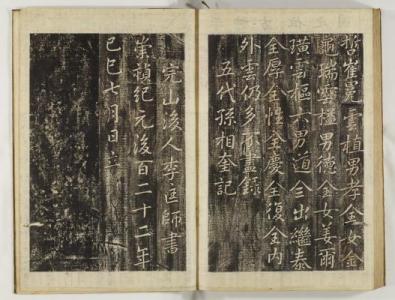 哲崔㝡雲植男孝全女金
瑞雲樞男德全女姜爾
璜雲樞六男道全出繼泰
全厚全性全慶全復全內
外雲仍多不盡錄
五代孫相奎記
完山後人李匡師書
崇禎紀元後百二十二年
己巳七月日立